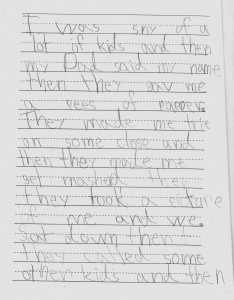 I was shy of a
lot of kids and then
my Dad said my name
then they gav me
a pees of paper.
They made me trie
on some close and
then they made me
get mashed then
They took a picture
of me and we.
Sat down then
they called some
other kids and then